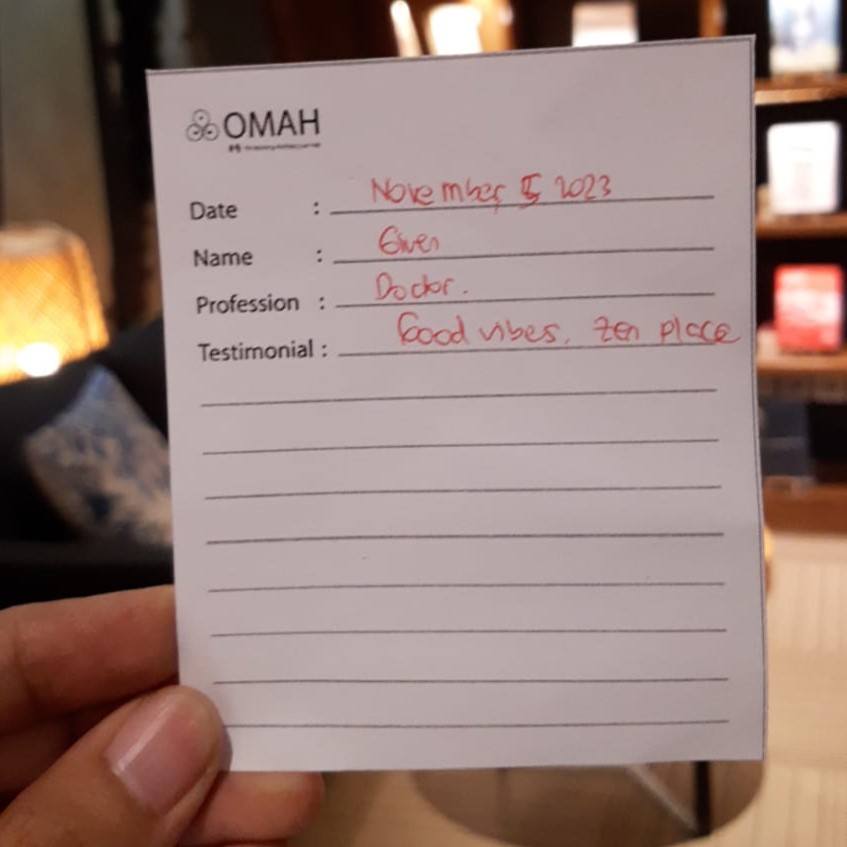 OMAH
Date : November 5 2023
Name : Gwen
Profession : Doctor.
Testimonial : Good vibes, zen place